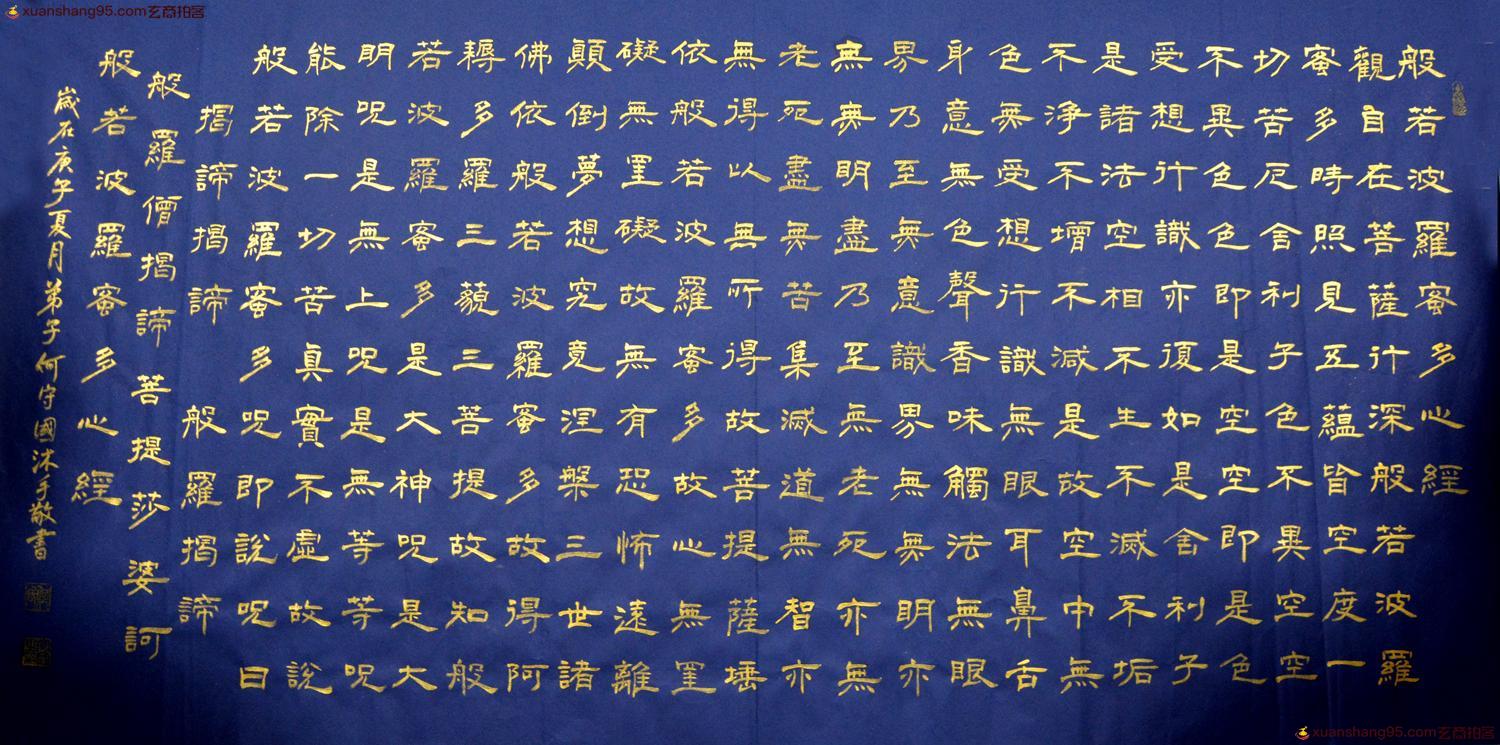 xuanshang95.com玄商拍客
般若波羅蜜多心經
觀自在菩薩行深般若波羅
蜜多時照見五蘊皆空度一
切苦厄舍利子色不異空空
不異色色即是空空即是色
受想行識亦復如是舍利子
是諸法空相不生不滅不垢
不淨不增不減是故空中無
色無受想行識無眼耳鼻舌
身意無色聲香味觸法無眼
界乃至無意識界無無明亦
無無明盡乃至無老死亦無
老死盡無苦集滅道無智亦
無得以無所得故菩提薩埵
依般若波羅蜜多故心無罣
礙無罣礙故無有恐怖遠離
顛倒夢想究竟涅槃三世諸
佛依般若波羅蜜多故得阿
耨多羅三藐三菩提故知般
若波羅蜜多是大神咒是大
明咒是無上咒是無等等咒
能除一切苦真實不虛故說
般若波羅蜜多咒即說咒曰
揭諦揭諦 般羅揭諦
般羅僧揭諦 菩提莎婆訶
般若波羅蜜多心經
歲在庚子夏月弟子何守國沐手敬書
xuanshang95.com玄商拍客